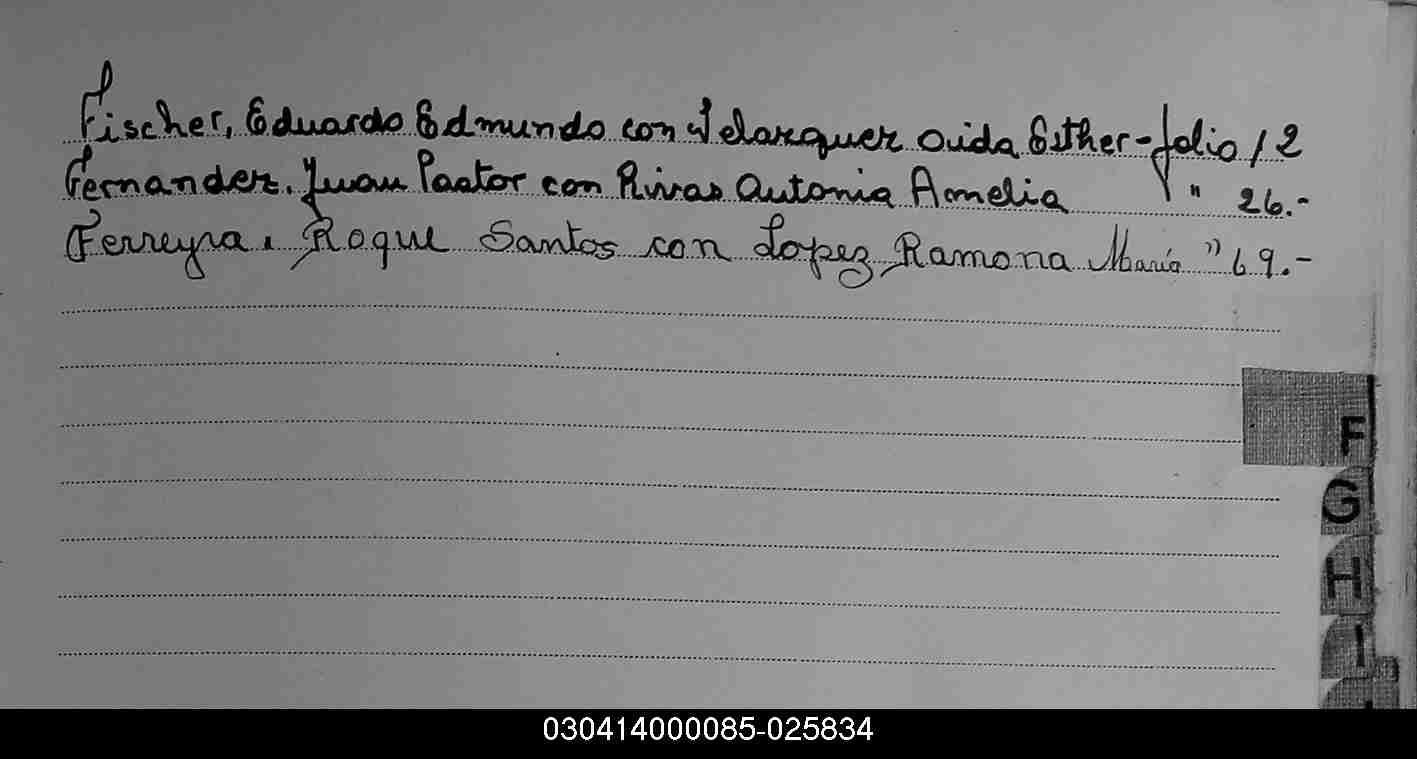 Fischer, Eduardo Edmundo con Velazquez Oida Esther-folio 12
Fernandez. Juan Pastor con Rivas Antonia Amelia " 26.-
Ferreyra. Roque Santos con Lopez Ramona María " 69.-
F
G
H
I
030414000085-025834